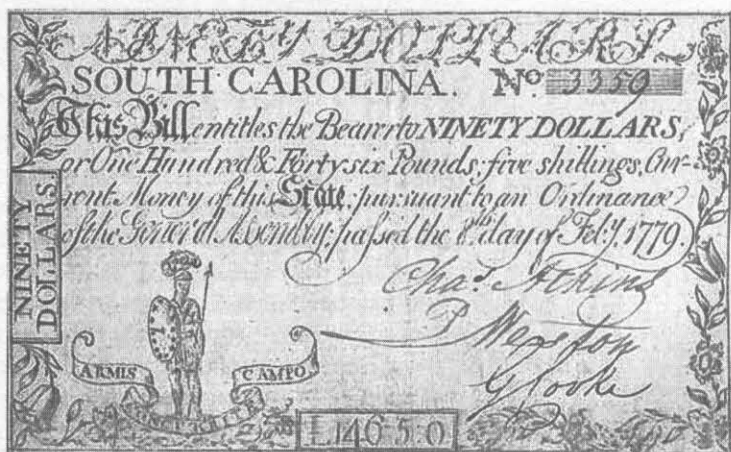 NINETY DOLLARS
SOUTH CAROLINA. No. 3359
This Bill entitles the Bearer to NINETY DOLLARS,
or One Hundred & Forty six Pounds, five shillings, Cur-
rent Money of this State, pursuant to an Ordinance
of the General Assembly, passed the 8th. day of Feby. 1779.
NINETY
DOLLARS.
Chas. Atkins
P Weston
G Cooke
ARMIS
CAMPO
£146:5:0